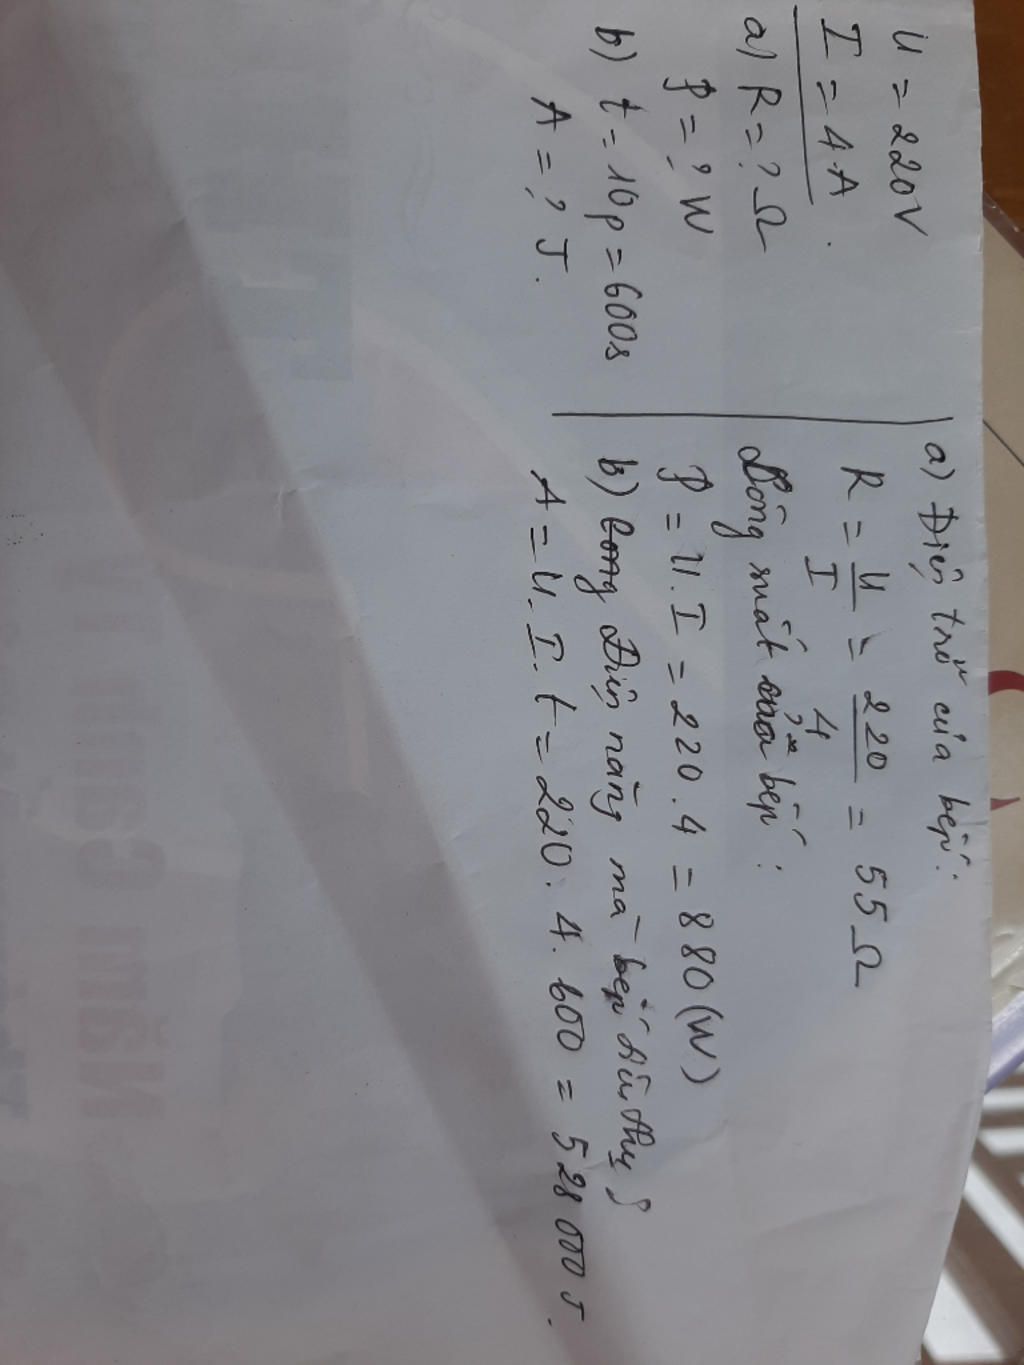 U = 220V
I = 4A.
a) R = ? Ω
P = ? W
b) t = 10p = 600s
A = ? J.
a) Điện trở của bếp:
R = U/I = 220/4 = 55 Ω
Công suất của bếp:
P = U.I = 220.4 = 880 (W)
b) Điện năng mà bếp tiêu thụ
A = U.I.t = 220.4.600 = 528 000 J.
Năm Cam